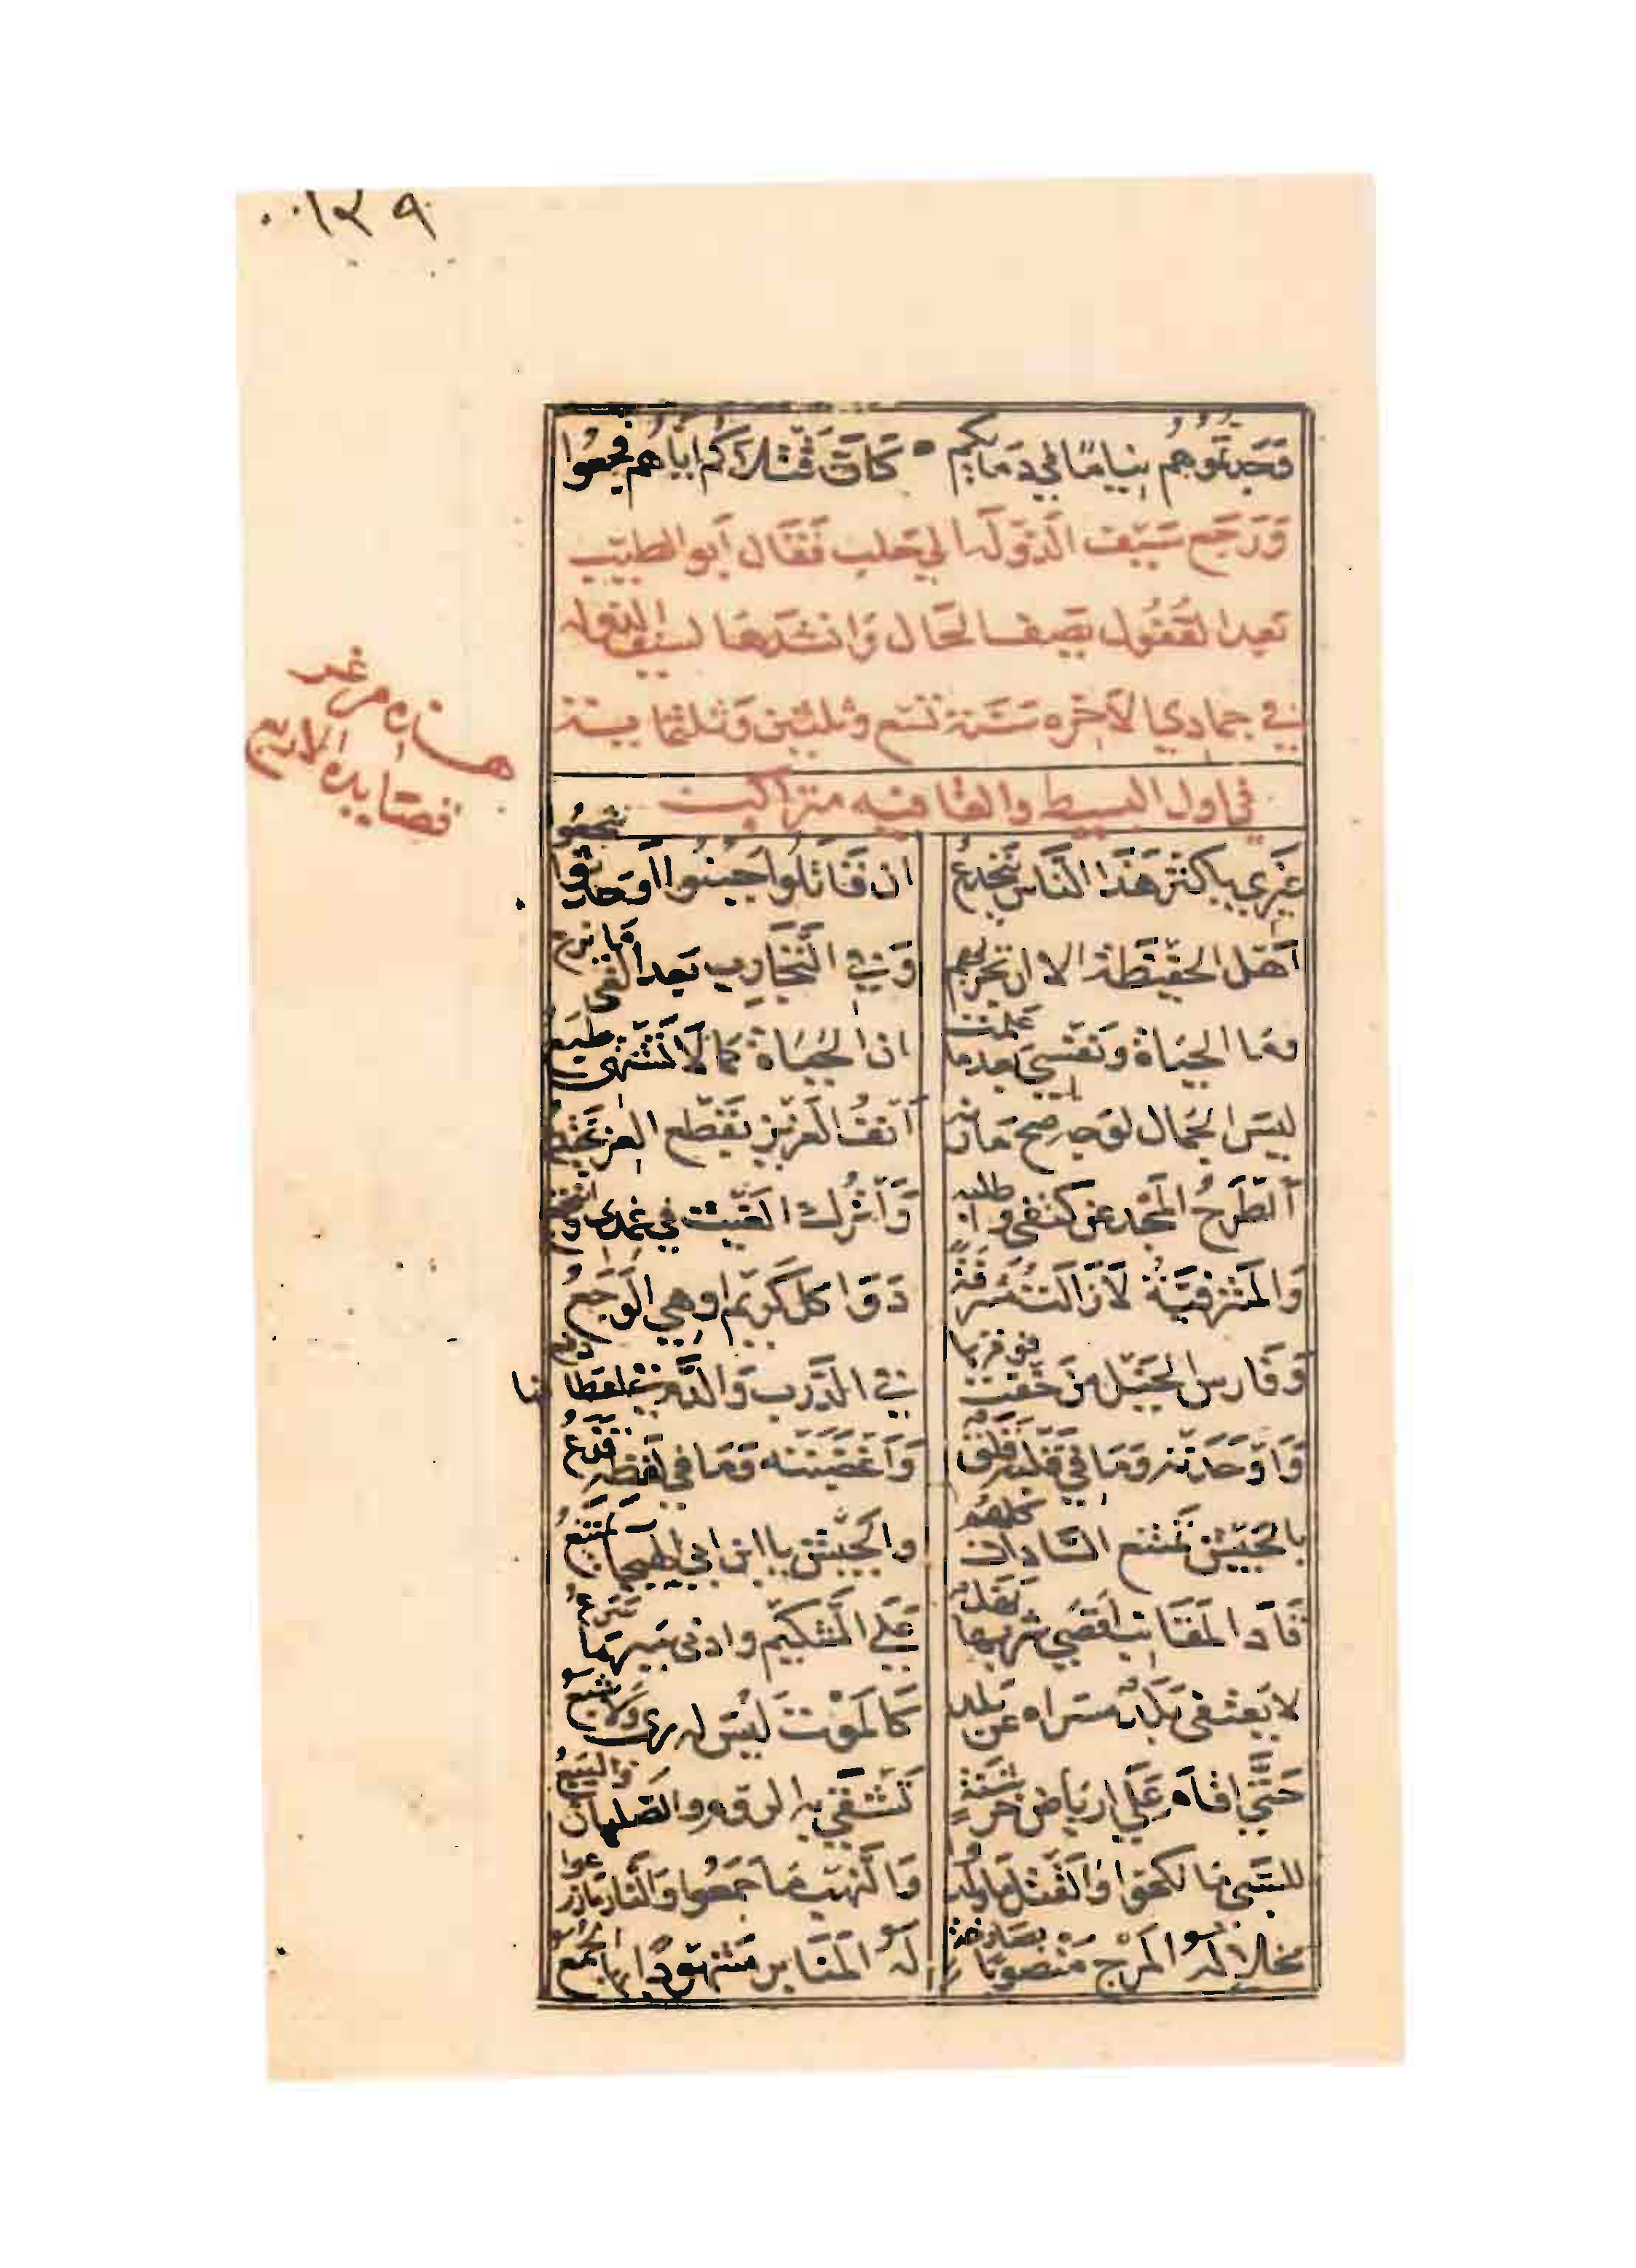 ١٢٩
وَجدتموهم نياما في دمايكم • كان قتلاكم اياهم فجعوا
وَرَجَع سَيف الدَولَه الي حَلب فَقَال أبو الطيّب
بَعد القُفُول يَصِف الحَال وَانشدَهَا لسَيف الدوله
في جمادي الآخره سَنَة تسَع وثلثين وَثلثمايئة
هذه من غير
قصايده الاربع
في اول البسيط والقافيه متراكب
غَيري باكثر هَذا النَّاس يَنخدعُ
ان قَاتلوا جَبنُوا اَو حَدّثوا شجعُوا
اَهل الحَفيظَة الا ان تجربهم
وَفي التَّجَارِب بَعد الغي مَا يزع
وَمَا الحَيَاة وَنَفسي بَعد ما علمت
ان الحَيَاة كمَا لا تَشتَهي طبع
ليسَ الجَمال لوَجه صح مَارنه
اَنفُ العَزيز بقَطع العز يجتدع
اَاَطرَحُ المَجد عَن كتفي واطلبه
وَاَترُك الغَيث في غمدي وانتجع
وَالمَشرَفيَّةُ لاَ زَالَت مُشرفَةً
دَوَا كل كَريم او هي الوَجعُ
وَفَارس الخَيل مَن خَفت فوقرها
في الدَّرب وَالدَّم في اعطافها دفع
وَاَوحَدَته وَمَا في قَلبه قَلَق
وَاَغضَبته وَمَا في لَفظه قَذعُ
بالجَيش تَمتنع السَّادات كلهم
وَالجَيش باابن ابي الهيجا يمتنعُ
قَاد المقَانب اَقصَي شربها نَهَل
عَلي الشَكيم وادني سَيرها سرعُ
لا يَعتقي بَلَد مَسراه عَن بَلَد
كَالمَوت لَيس له ري وَلا شبع
حَتَّي اقام عَلَي ارباض خَرشَنَة
تَشقَي به الروم والصَلبان والبيَع
للسَّبي مَا نكحوا وَالقَتل مَا ولدوا
وَالنَّهب مَا جَمَعُوا وَالنَّار مَا زرعوا
مخلا لَه المَرج مَنصوبًا بصَارخة
لَه المَنَابر مَشهودًا بها الجمع